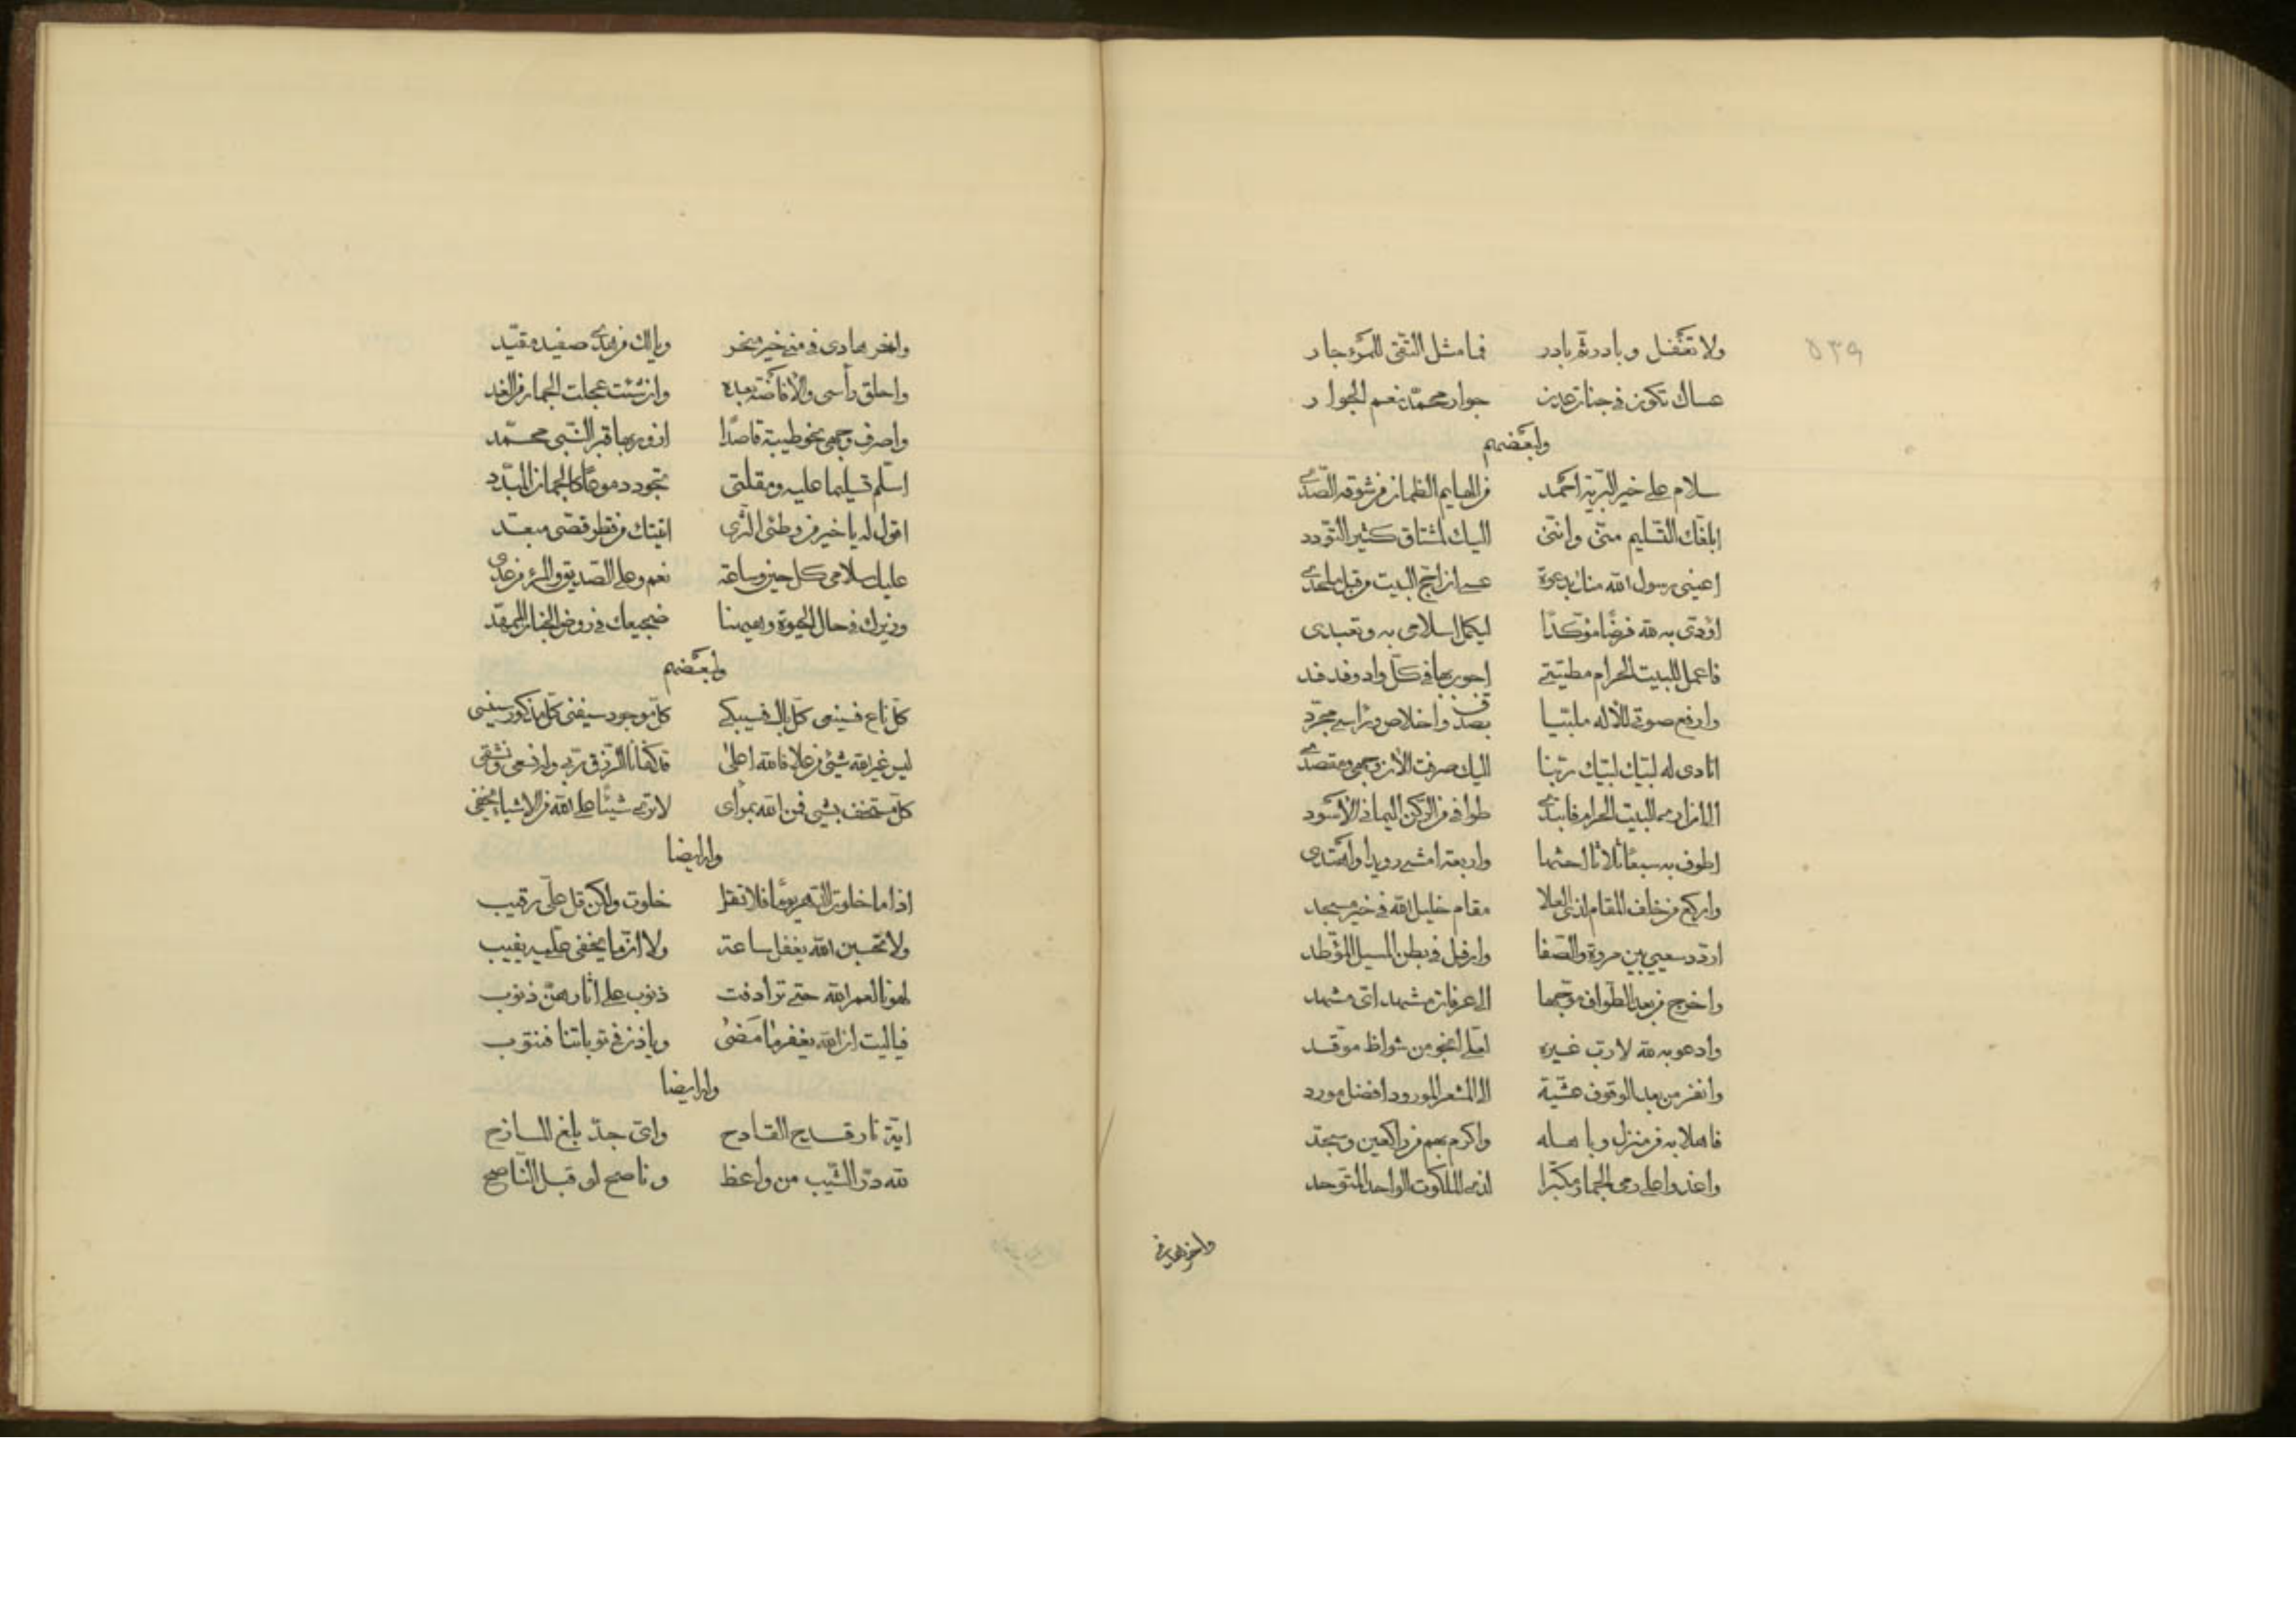 ٥٣٩
ولا تغفل وبادر ثم بادر فما مثل التقى للمرء جار
عساك تكون في جنات عدن جوار محمد نعم الجوار
ولبعضهم
سلام على خير البرية احمد من الهايم الظمان من شوقه الصدى
ابلغك التسليم منى واننى اليك لمشتاق كثير التودد
اعينى رسول الله منك بدعوة عسى ان احج البيت من قبل ملحدى
اؤدى به لله فرضا مؤكدا ليكمل اسلامى به وتعبدى
فاعمل للبيت الحرام مطيتى اجوب بها فى كل واد وفدفد
وارفع صوتى للاله ملبيا بصدق واخلاص وراسى مجرد
انادى له لبيك لبيك ربنا اليك صرفت الان وجهى ومقصدى
الى ان ارى البيت الحرام فابتدى طوافى من الركن اليمانى الاسود
اطوف به سبعا ثلاثا احثها واربعة امشى رويدا واهتدى
واركع من خلف المقام لذى العلا مقام خليل الله فى خير مسجد
اردد سعيى بين مروة والصفا وارفل فى بطن المسيل الموطد
واخرج من بعد الطواف موجها الى عرفات مشهد اى مشهد
وادعو به لله لا رب غيره لعلى انجو من شواظ موقد
وانفر من بعد الوقوف عشية الى المشعر المورود افضل مورد
فاهلا به من منزل وباهله واكرم بهم من راكعين وسجد
واغدو اعلى رمى الجمار مكبرا لذى الملكوت الواحد المتوحد
وانحر هديى فى
وانحر هادى فى منى خير منحر ويالك من هدى صفيد مقيد
واحلق رأسى والافاضة بعده وان شئت عجلت الجمار من الغد
واصرف وجهى نحو طيبة قاصدا ازور بها قبر النبى محمد
اسلم تسليما عليه ومقلتى تجود دموعا كالجمان المبدد
اقول له يا خير من وطئ الثرى اتيتك من قطر قصى مبعد
عليك سلامى كل حين وساعة نعم وعلى الصديق والبر من عدى
وزيرك فى حال الحيوة وهيهنا ضجيعك فى روض الجنان الممهد
ولبعضهم
كل ناع فسينعى كل باك فسيبكى كل موجود سيفنى كل مذكور سينسى
ليس غير الله شئ من علا فالله اعلى قد كفانا الرزق ربى ولدنسعى ونشقى
كل مستخف بشئ فمن الله بمرأى لا ترى شيئا على الله من الاشياء يخفى
وله ايضا
اذا ما خلوت الدهر يوما فلا تقل خلوت ولكن قل على رقيب
ولا تحسبن الله يغفل ساعة ولا ان ما يخفى عليه يغيب
لهونا لعمر الله حتى ترادفت ذنوب على اثارهن ذنوب
فيا ليت ان الله يغفر ما مضى وياذن فى توباتنا فنتوب
وله ايضا
اية نار قدح القادح واى جد بلغ المازح
لله در الشيب من واعظ وناصح لو قبل الناصح